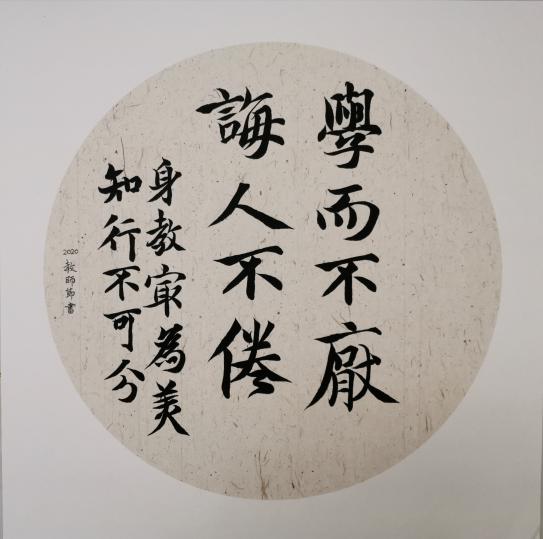 學而不厭
誨人不倦
身教㝡為美
知行不可分
2020教師節書